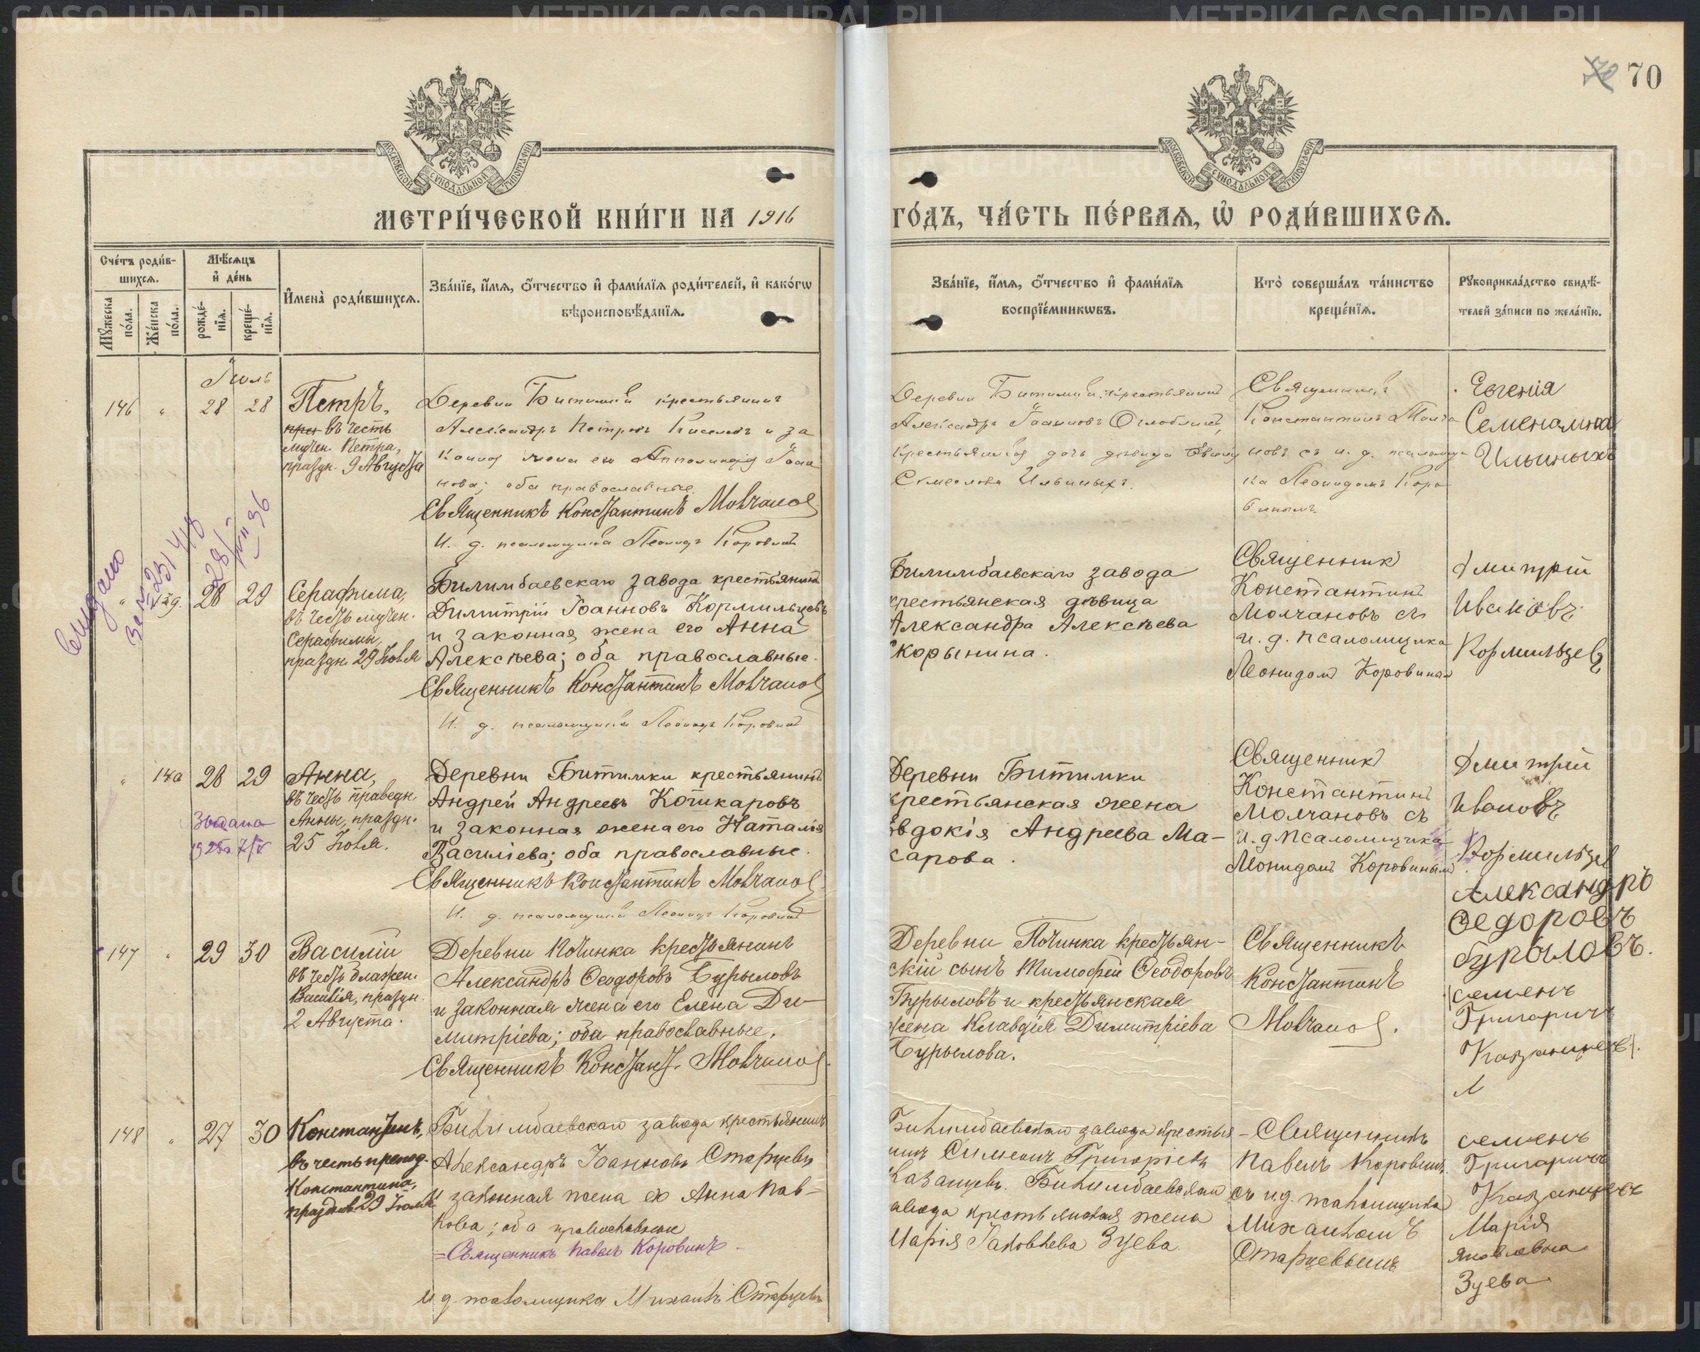 70
МЕТРИ́ЧЕСКОЙ КНИ́ГИ НА 1916
ГО́ДЪ, ЧА́СТЬ ПЕ́РВАѦ, Ѽ РОДИ́ВШИХСѦ.
Сче́тъ роди́в-
шихсѧ.
Мꙋ́жеска по́ла.
Же́нска по́ла.
Мѣ́сѧцъ
и҆ де́нь
рожде́-
нїѧ.
креще́-
нїѧ.
И҆мена̀ роди́вшихсѧ.
Зва́нїе, и҆́мѧ, ѻ҆́тчество и҆ фами́лїѧ роди́телей, и҆ како́гѡ
вѣроисповѣ́данїѧ.
Зва́нїе, и҆́мѧ, ѻ҆́тчество и҆ фами́лїѧ
воспрїе́мникѡвъ.
Кто̀ соверша́лъ та́инство
креще́нїѧ.
Рꙋкоприкла́дство свидѣ́-
телей за́писи по жела́нїю.
Іюль
146 " 28 28
Петръ,
въ честь
мучен. Петра,
праздн. 9 Августа
Деревни Битимки крестьянинъ
Александръ Петровъ Киселевъ и за
конная жена его Апполинарія Іоан
нова; оба православные
Священникъ Константинъ Молчановъ
И. д. псаломщика Леонидъ Коровинъ
Деревни Битимки крестьянинъ
Александръ Іоанновъ Оглоблинъ,
крестьянская дочь девица Евгенія
Семенова Ильиныхъ.
Священникъ
Константинъ Молча
новъ съ и. д. псаломщи
ка Леонидомъ Коро
винымъ
Евгенія
Семеновна
Ильиныхъ
" 149. 28 29
Серафима,
въ честь мучен.
Серафимы,
праздн. 29 Іюля
Билимбаевскаго завода крестьянинъ
Димитрій Іоанновъ Кормильцевъ
и законная жена его Анна
Алексѣева; оба православные.
Священникъ Константинъ Молчановъ
И. д. псаломщика Леонидъ Коровинъ
Билимбаевскаго завода
крестьянская дѣвица
Александра Алексѣева
Скорынина.
Священникъ
Константинъ
Молчановъ съ
и. д. псаломщика
Леонидомъ Коровинымъ
Дмитрій
Ивановъ
Кормильцевъ
" 150 28 29
Анна,
въ честь праведн.
Анны, праздн.
25 Іюля.
Деревни Битимки крестьянинъ
Андрей Андреевъ Кочкаровъ
и законная жена его Наталія
Василіева; оба православные.
Священникъ Константинъ Молчановъ
И. д. псаломщика Леонидъ Коровинъ
Деревни Битимки
крестьянская жена
Евдокія Андреева Ма-
сарова.
Священникъ
Константинъ
Молчановъ съ
и. д. псаломщика
Леонидомъ Коровинымъ
Дмитрій
Ивановъ
Кормильцев
147 " 29 30
Василій
въ честь блажен.
Василія, праздн.
2 Августа.
Деревни Починка крестьянинъ
Александръ Ѳеодоровъ Бурыловъ
и законная жена его Елена Ди-
митріева; оба православные.
Священникъ Констант. Молчановъ.
Деревни Починка крестьян-
скій сынъ Тимофей Ѳеодоровъ
Бурыловъ и крестьянская
жена Клавдія Димитріева
Бурылова.
Священникъ
Константинъ
Молчановъ.
Александръ
Федоровъ
Бурыловъ.
семенъ
Григоричъ
Казанцевъ
148 " 27 30
Константинъ,
въ честь препод.
Константина,
праздн. 29 Іюля
Билимбаевскаго завода крестьянинъ
Александръ Іоанновъ Старцевъ
и законная жена его Анна Пав-
лова; оба православные
Священникъ Павелъ Коровинъ.
И д псаломщика Михаилъ Старцевъ
Билимбаевскаго завода крестья-
нинъ Симеонъ Григоріевъ
Казанцевъ. Билимбаевскаго
завода крестьянская жена
Марія Іаковлева Зуева
Священникъ
Павелъ Коровинъ
съ и д псаломщика
Михаиломъ
Старцевымъ
семенъ
Григоричъ
Казанцевъ
Марія
Яковлевна
Зуева
METRIKI.GASO-URAL.RU